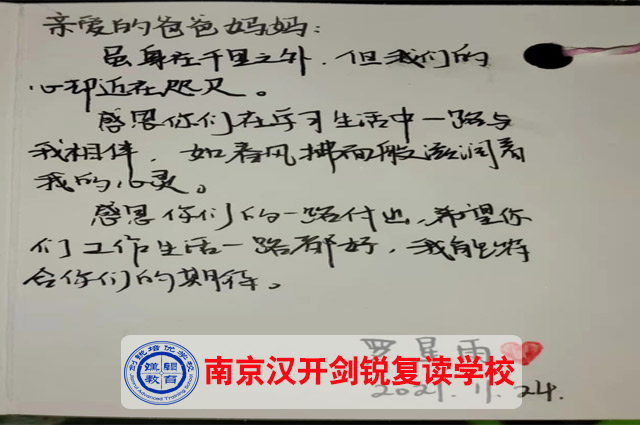 亲爱的爸爸妈妈：
虽身在千里之外，但我们的
心却近在咫尺。
感恩你们在学习生活中一路与
我相伴，如春风拂面般滋润着
我的心灵。
感恩你们的一路付出，希望你
们工作生活一路都好，我能符
合你们的期待。
罗星雨
2021.11.24.
剑锐培优学校
汉開
教育
Advanced Training School
南京汉开剑锐复读学校